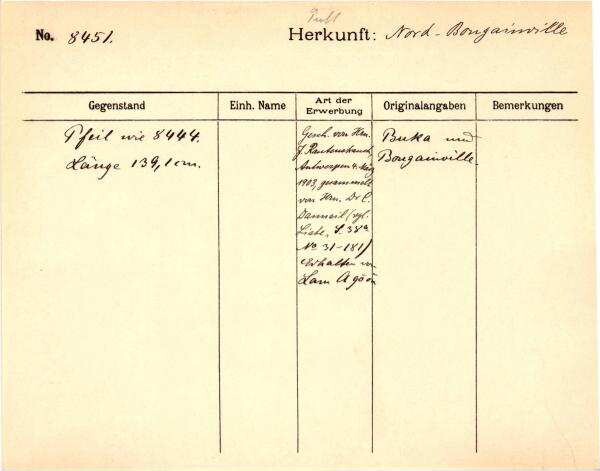 No. 8451. Herkunft: Nord-Bougainville
Gegenstand Einh. Name Art der Erwerbung Originalangaben Bemerkungen
Pfeil wie 8444.
Länge 139,1 cm.
Gesch. von Hrn.
J. Rautenstrauch,
Antwerpen 4. März
1903, gesammelt
von Hrn. Dr. E.
Danneil (vgl.
Liste, S. 38a
No 31-181)
Erhalten
Buka und
Bougainville.